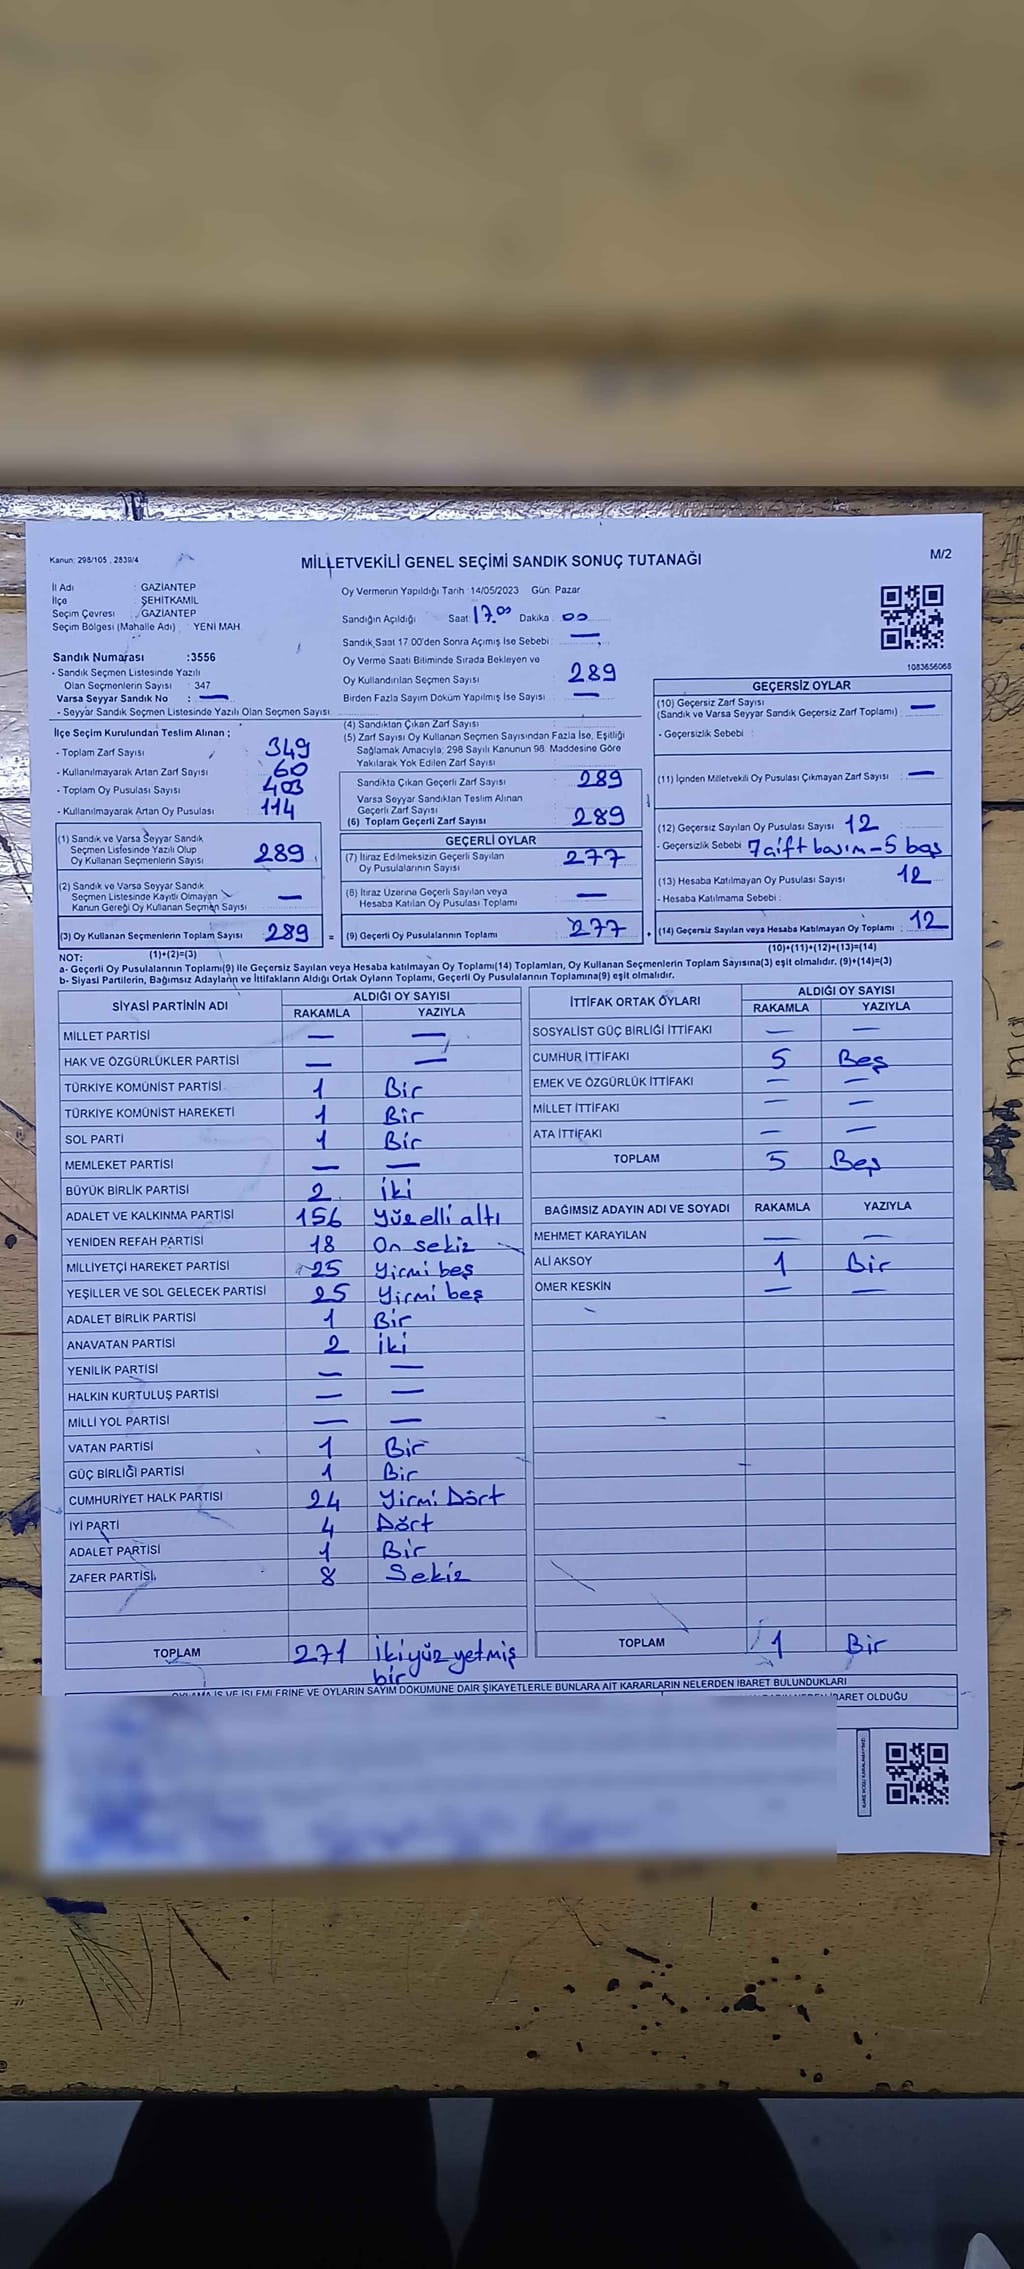 Kanun: 298/105 , 2839/4
MİLLETVEKİLİ GENEL SEÇİMİ SANDIK SONUÇ TUTANAĞI
M/2
İl Adı : GAZİANTEP
İlçe : ŞEHİTKAMİL
Seçim Çevresi : GAZİANTEP
Seçim Bölgesi (Mahalle Adı) : YENİ MAH.
Sandık Numarası :3556
- Sandık Seçmen Listesinde Yazılı
Olan Seçmenlerin Sayısı : 347
Varsa Seyyar Sandık No : —
- Seyyar Sandık Seçmen Listesinde Yazılı Olan Seçmen Sayısı
Oy Vermenin Yapıldığı Tarih :14/05/2023 Gün: Pazar
Sandığın Açıldığı Saat 17.00 Dakika : 00
Sandık Saat 17:00'den Sonra Açımış İse Sebebi : —
Oy Verme Saati Bitiminde Sırada Bekleyen ve
Oy Kullandırılan Seçmen Sayısı : 289
Birden Fazla Sayım Döküm Yapılmış İse Sayısı : —
1083656068
İlçe Seçim Kurulundan Teslim Alınan ;
- Toplam Zarf Sayısı : 349
- Kullanılmayarak Artan Zarf Sayısı : 60
- Toplam Oy Pusulası Sayısı : 403
- Kullanılmayarak Artan Oy Pusulası : 114
(1) Sandık ve Varsa Seyyar Sandık
Seçmen Listesinde Yazılı Olup
Oy Kullanan Seçmenlerin Sayısı : 289
(2) Sandık ve Varsa Seyyar Sandık
Seçmen Listesinde Kayıtlı Olmayan
Kanun Gereği Oy Kullanan Seçmen Sayısı : —
(3) Oy Kullanan Seçmenlerin Toplam Sayısı : 289
(1)+(2)=(3)
(4) Sandıktan Çıkan Zarf Sayısı :
(5) Zarf Sayısı Oy Kullanan Seçmen Sayısından Fazla İse, Eşitliği
Sağlamak Amacıyla; 298 Sayılı Kanunun 98. Maddesine Göre
Yakılarak Yok Edilen Zarf Sayısı
Sandıkta Çıkan Geçerli Zarf Sayısı : 289
Varsa Seyyar Sandıktan Teslim Alınan
Geçerli Zarf Sayısı
(6) Toplam Geçerli Zarf Sayısı : 289
GEÇERLİ OYLAR
(7) İtiraz Edilmeksizin Geçerli Sayılan
Oy Pusulalarının Sayısı : 277
(8) İtiraz Üzerine Geçerli Sayılan veya
Hesaba Katılan Oy Pusulası Toplamı : —
= (9) Geçerli Oy Pusulalarının Toplamı : 277 +
GEÇERSİZ OYLAR
(10) Geçersiz Zarf Sayısı
(Sandık ve Varsa Seyyar Sandık Geçersiz Zarf Toplamı) : —
- Geçersizlik Sebebi :
(11) İçinden Milletvekili Oy Pusulası Çıkmayan Zarf Sayısı : —
(12) Geçersiz Sayılan Oy Pusulası Sayısı : 12
- Geçersizlik Sebebi 7 çift basım - 5 boş
(13) Hesaba Katılmayan Oy Pusulası Sayısı : 12
- Hesaba Katılmama Sebebi :
(14) Geçersiz Sayılan veya Hesaba Katılmayan Oy Toplamı : 12
(10)+(11)+(12)+(13)=(14)
NOT:
a- Geçerli Oy Pusulalarının Toplamı(9) ile Geçersiz Sayılan veya Hesaba katılmayan Oy Toplamı(14) Toplamları, Oy Kullanan Seçmenlerin Toplam Sayısına(3) eşit olmalıdır. (9)+(14)=(3)
b- Siyasi Partilerin, Bağımsız Adayların ve İttifakların Aldığı Ortak Oyların Toplamı, Geçerli Oy Pusulalarının Toplamına(9) eşit olmalıdır.
SİYASİ PARTİNİN ADI ALDIĞI OY SAYISI
RAKAMLA YAZIYLA
MİLLET PARTİSİ — —
HAK VE ÖZGÜRLÜKLER PARTİSİ — —
TÜRKİYE KOMÜNİST PARTİSİ 1 Bir
TÜRKİYE KOMÜNİST HAREKETİ 1 Bir
SOL PARTİ 1 Bir
MEMLEKET PARTİSİ — —
BÜYÜK BİRLİK PARTİSİ 2 iki
ADALET VE KALKINMA PARTİSİ 156 Yüzelli altı
YENİDEN REFAH PARTİSİ 18 On sekiz
MİLLİYETÇİ HAREKET PARTİSİ 25 Yirmi beş
YEŞİLLER VE SOL GELECEK PARTİSİ 25 Yirmi beş
ADALET BİRLİK PARTİSİ 1 Bir
ANAVATAN PARTİSİ 2 iki
YENİLİK PARTİSİ — —
HALKIN KURTULUŞ PARTİSİ — —
MİLLİ YOL PARTİSİ — —
VATAN PARTİSİ 1 Bir
GÜÇ BİRLİĞİ PARTİSİ 1 Bir
CUMHURİYET HALK PARTİSİ 24 Yirmi Dört
İYİ PARTİ 4 Dört
ADALET PARTİSİ 1 Bir
ZAFER PARTİSİ 8 Sekiz
TOPLAM 271 ikiyüz yetmiş
bir
İTTİFAK ORTAK OYLARI ALDIĞI OY SAYISI
RAKAMLA YAZIYLA
SOSYALİST GÜÇ BİRLİĞİ İTTİFAKI — —
CUMHUR İTTİFAKI 5 Beş
EMEK VE ÖZGÜRLÜK İTTİFAKI — —
MİLLET İTTİFAKI — —
ATA İTTİFAKI — —
TOPLAM 5 Beş
BAĞIMSIZ ADAYIN ADI VE SOYADI RAKAMLA YAZIYLA
MEHMET KARAYILAN — —
ALİ AKSOY 1 Bir
ÖMER KESKİN — —
TOPLAM 1 Bir
OYLAMA İŞ VE İŞLEMLERİNE VE OYLARIN SAYIM DÖKÜMÜNE DAİR ŞİKAYETLERLE BUNLARA AİT KARARLARIN NELERDEN İBARET BULUNDUKLARI
İBARET OLDUĞU